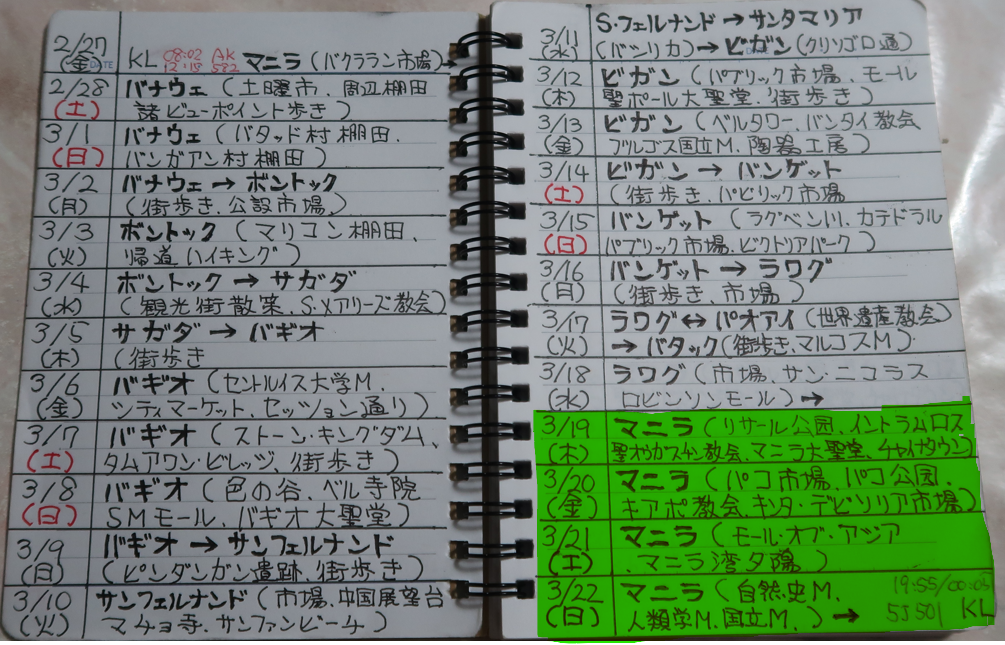 2/27
(金) DATE KL 08:02 AK マニラ(バクララン市場)→
12:15 582
2/28 バナウェ(土曜市、周辺棚田
(土) 諸ビューポイント歩き)
3/1 バナウェ(バタッド村棚田、
(日) バンガアン村棚田)
3/2 バナウェ→ボントック
(月) (街歩き、公設市場)
3/3 ボントック(マリコン棚田、
(火) 帰道ハイキング)
3/4 ボントック→サガダ
(水) (観光街散策、S・メアリーズ教会)
3/5 サガダ→バギオ
(木) (街歩き
3/6 バギオ(セントルイス大学M、
(金) シティマーケット、セッション通り)
3/7 バギオ(ストーン・キングダム、
(土) タムアワン・ビレッジ、街歩き)
3/8 バギオ(色の谷、ベル寺院
(日) SMモール、バギオ大聖堂)
3/9 バギオ→サンフェルナンド
(月) (ピンダンガン遺跡、街歩き)
3/10 サンフェルナンド(市場、中国展望台
(火) マチョ寺、サンファンビーチ)
3/11 S・フェルナンド→サンタマリア
(水) (バシリカ)→ビガン(クリソゴロ通)
3/12 ビガン(パブリック市場、モール
(木) 聖ポール大聖堂、街歩き)
3/13 ビガン(ベルタワー、バンタイ教会
(金) ブルゴス国立M、陶器工房)
3/14 ビガン→バンゲット
(土) (街歩き、パビリック市場
3/15 バンゲット(ラグベン川、カテドラル
(日) パブリック市場、ビクトリアパーク)
3/16 バンゲット→ラワグ
(月) (街歩き、市場)
3/17 ラワグ↔パオアイ(世界遺産教会)
(火) →バタック(街歩き、マルコスM)
3/18 ラワグ(市場、サン・ニコラス
(水) ロビンソンモール)→
3/19 マニラ(リサール公園、イントラムロス
(木) 聖オウガスチン教会、マニラ大聖堂、チャイナタウン)
3/20 マニラ(パコ市場、パコ公園、
(金) キアポ教会、キンタ・デビソリア市場)
3/21 マニラ(モール・オブ・アジア
(土) 、マニラ湾夕陽)
3/22 マニラ(自然史M、 19:55/00:05
(日) 人類学M、国立M、)→ 5J501 KL